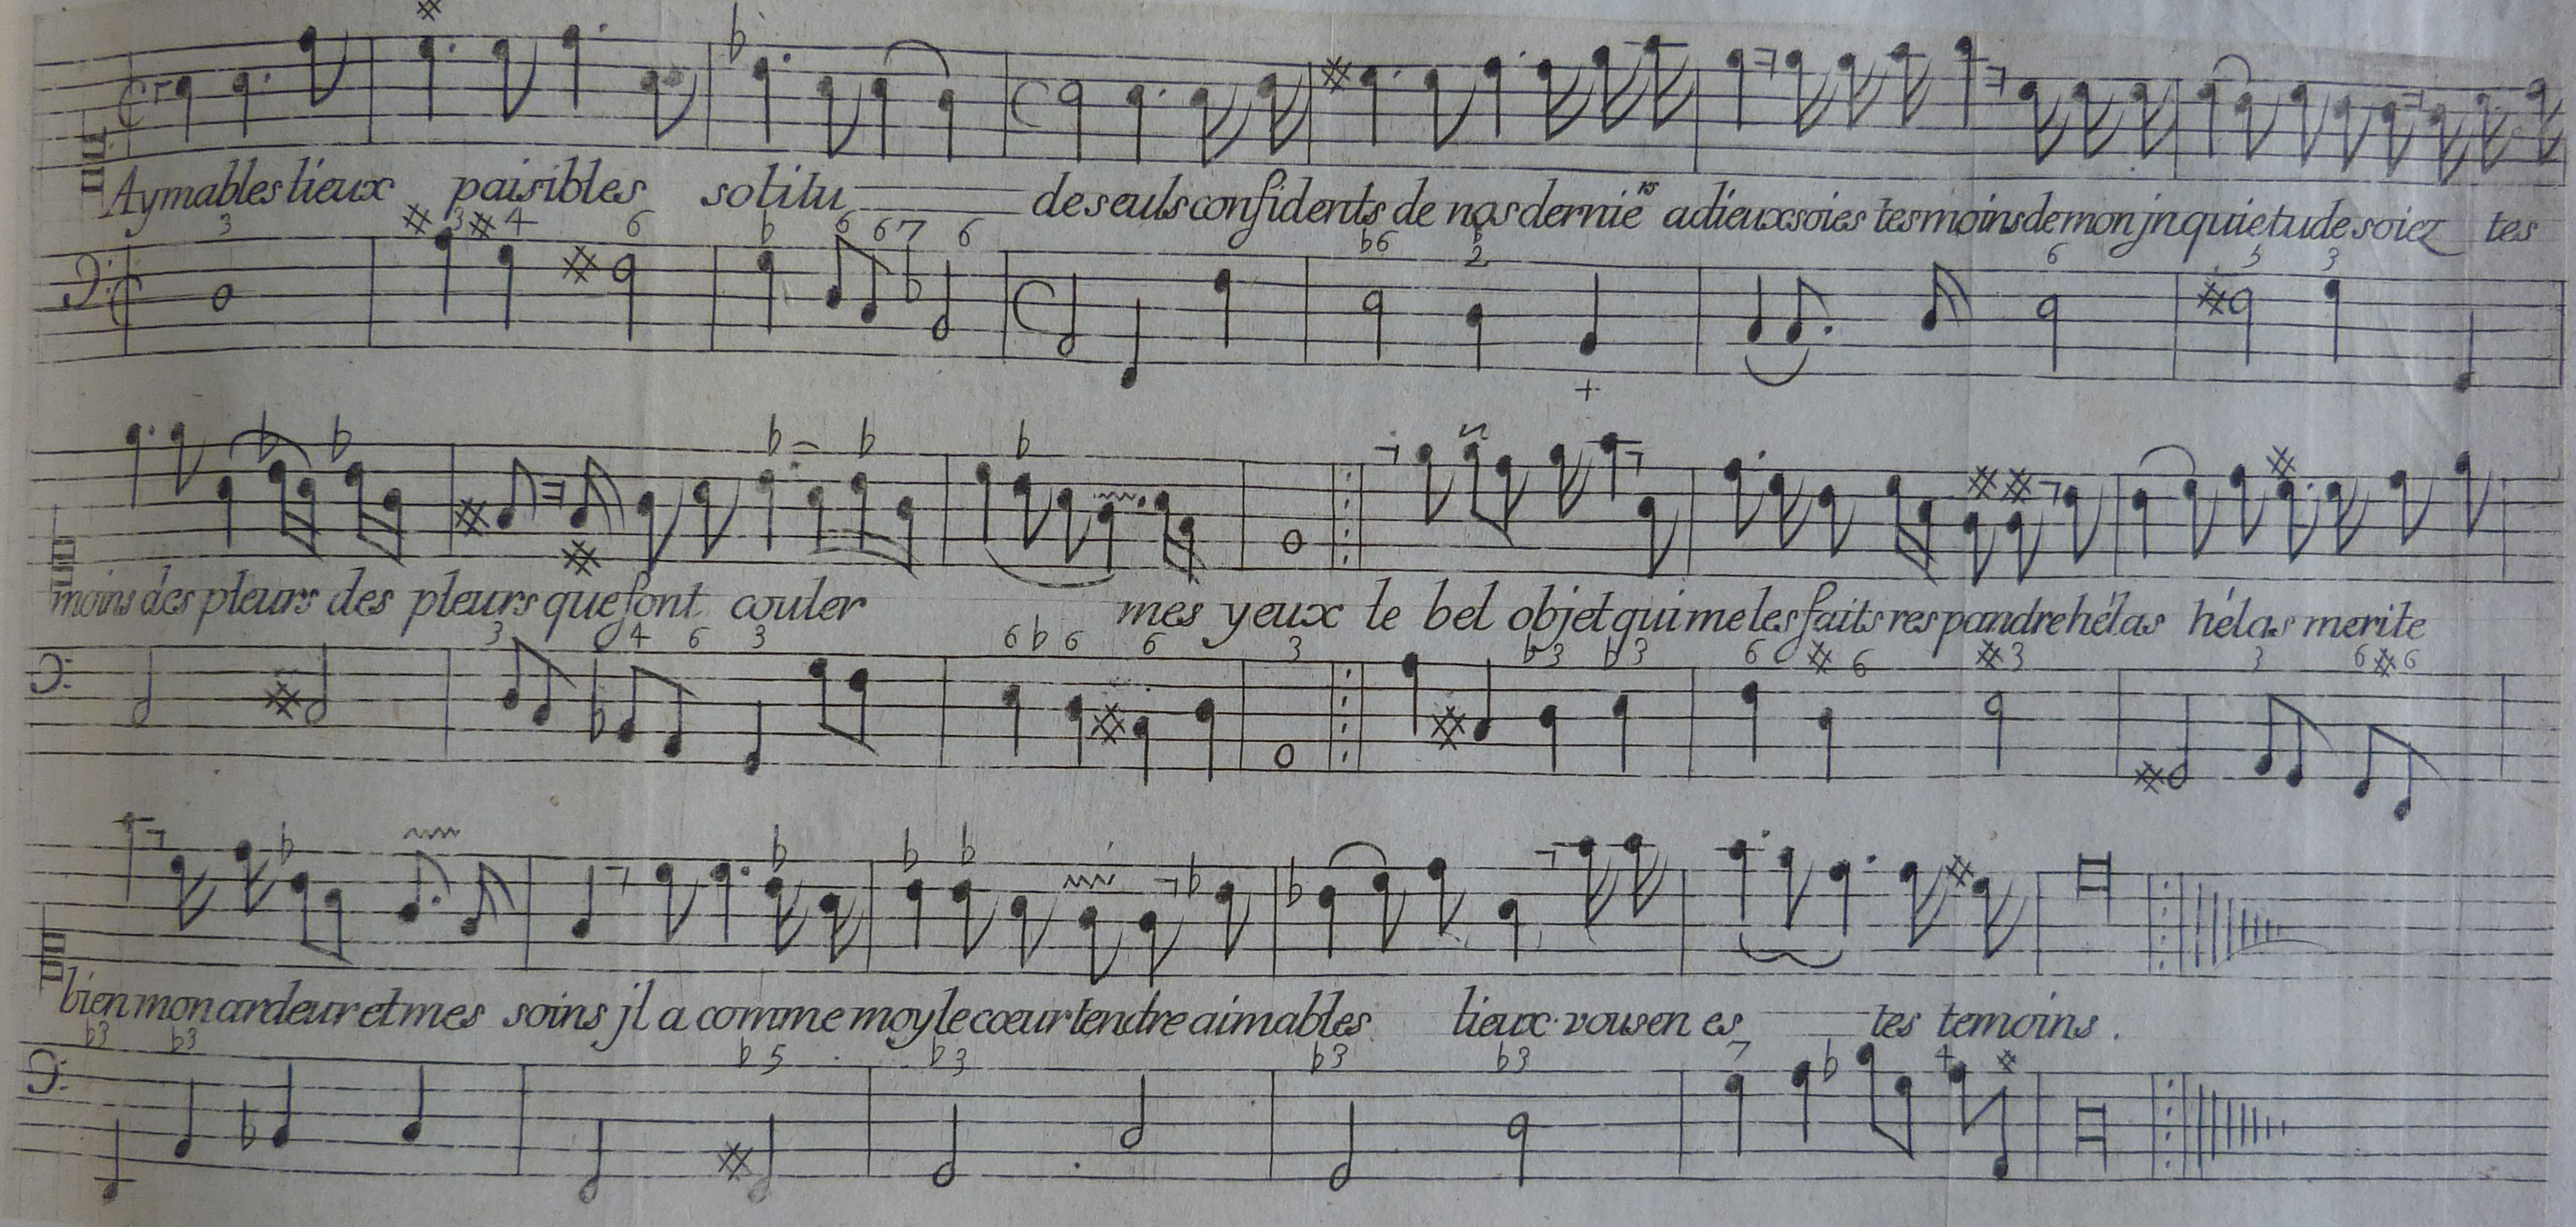 Aymables lieux paisibles solitu de seuls confidents de nos dernie rs adieux soies tesmoins de mon jnquietude soiez tes
3 # 3 # 4 6 b 6 6 7 6 b6 b 2 6 5 3
moins des pleurs des pleurs que font couler mes yeux le bel objet qui me les faits respandre hélas hélas merite
3 4 6 3 6 b 6 6 3 b3 b3 6 # 6 #3 3 6 # 6
bien mon ardeur et mes soins jl a comme moy le cœur tendre aimables lieux vous en es tes temoins .
b3 b3 b 5 b3 b3 b3 7 4